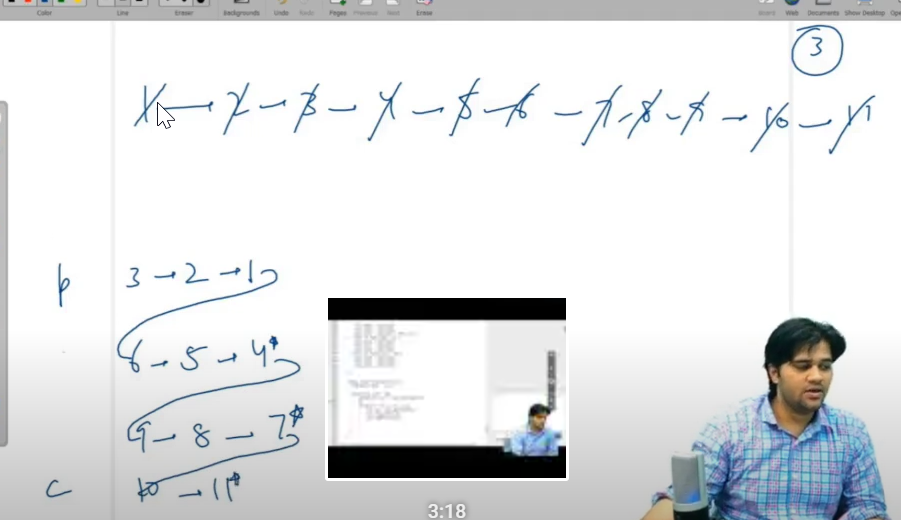 Color Line Eraser Backgrounds Undo Redo Pages Previous Next Erase Board Web Documents Show Desktop
3
1 → 2 → 3 → 4 → 5 → 6 → 7 → 8 → 9 → 10 → 11
p 3 → 2 → 1
6 → 5 → 4*
9 → 8 → 7*
c 10 → 11*
3:18